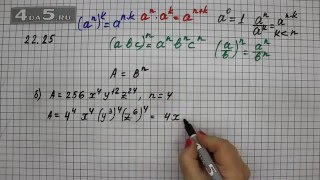 4DA5.RU
(aⁿ)ᵏ = aⁿ·ᵏ aⁿ · aᵏ = aⁿ⁺ᵏ a⁰ = 1 aⁿ/aᵏ = aⁿ⁻ᵏ
k < n
22.25
(abc)ⁿ = aⁿbⁿcⁿ (a/b)ⁿ = aⁿ/bⁿ
A = Bⁿ
б) A = 256 x⁴ y¹² z²⁴, n = 4
A = 4⁴ x⁴ (y³)⁴ (z⁶)⁴ = 4x